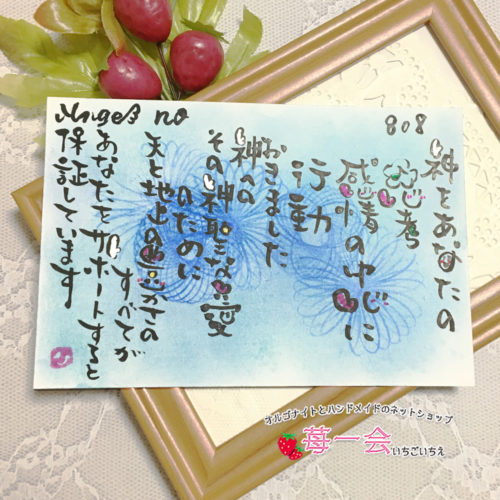 808
神をあなたの
思考
感情の中心に
行動
おきました
神への
その神聖な愛
のために
天と地上の豊かさの
すべてが
あなたをサポートすると
保証しています
Angel no
オルゴナイトとハンドメイドのネットショップ
苺一会いちごいちえ